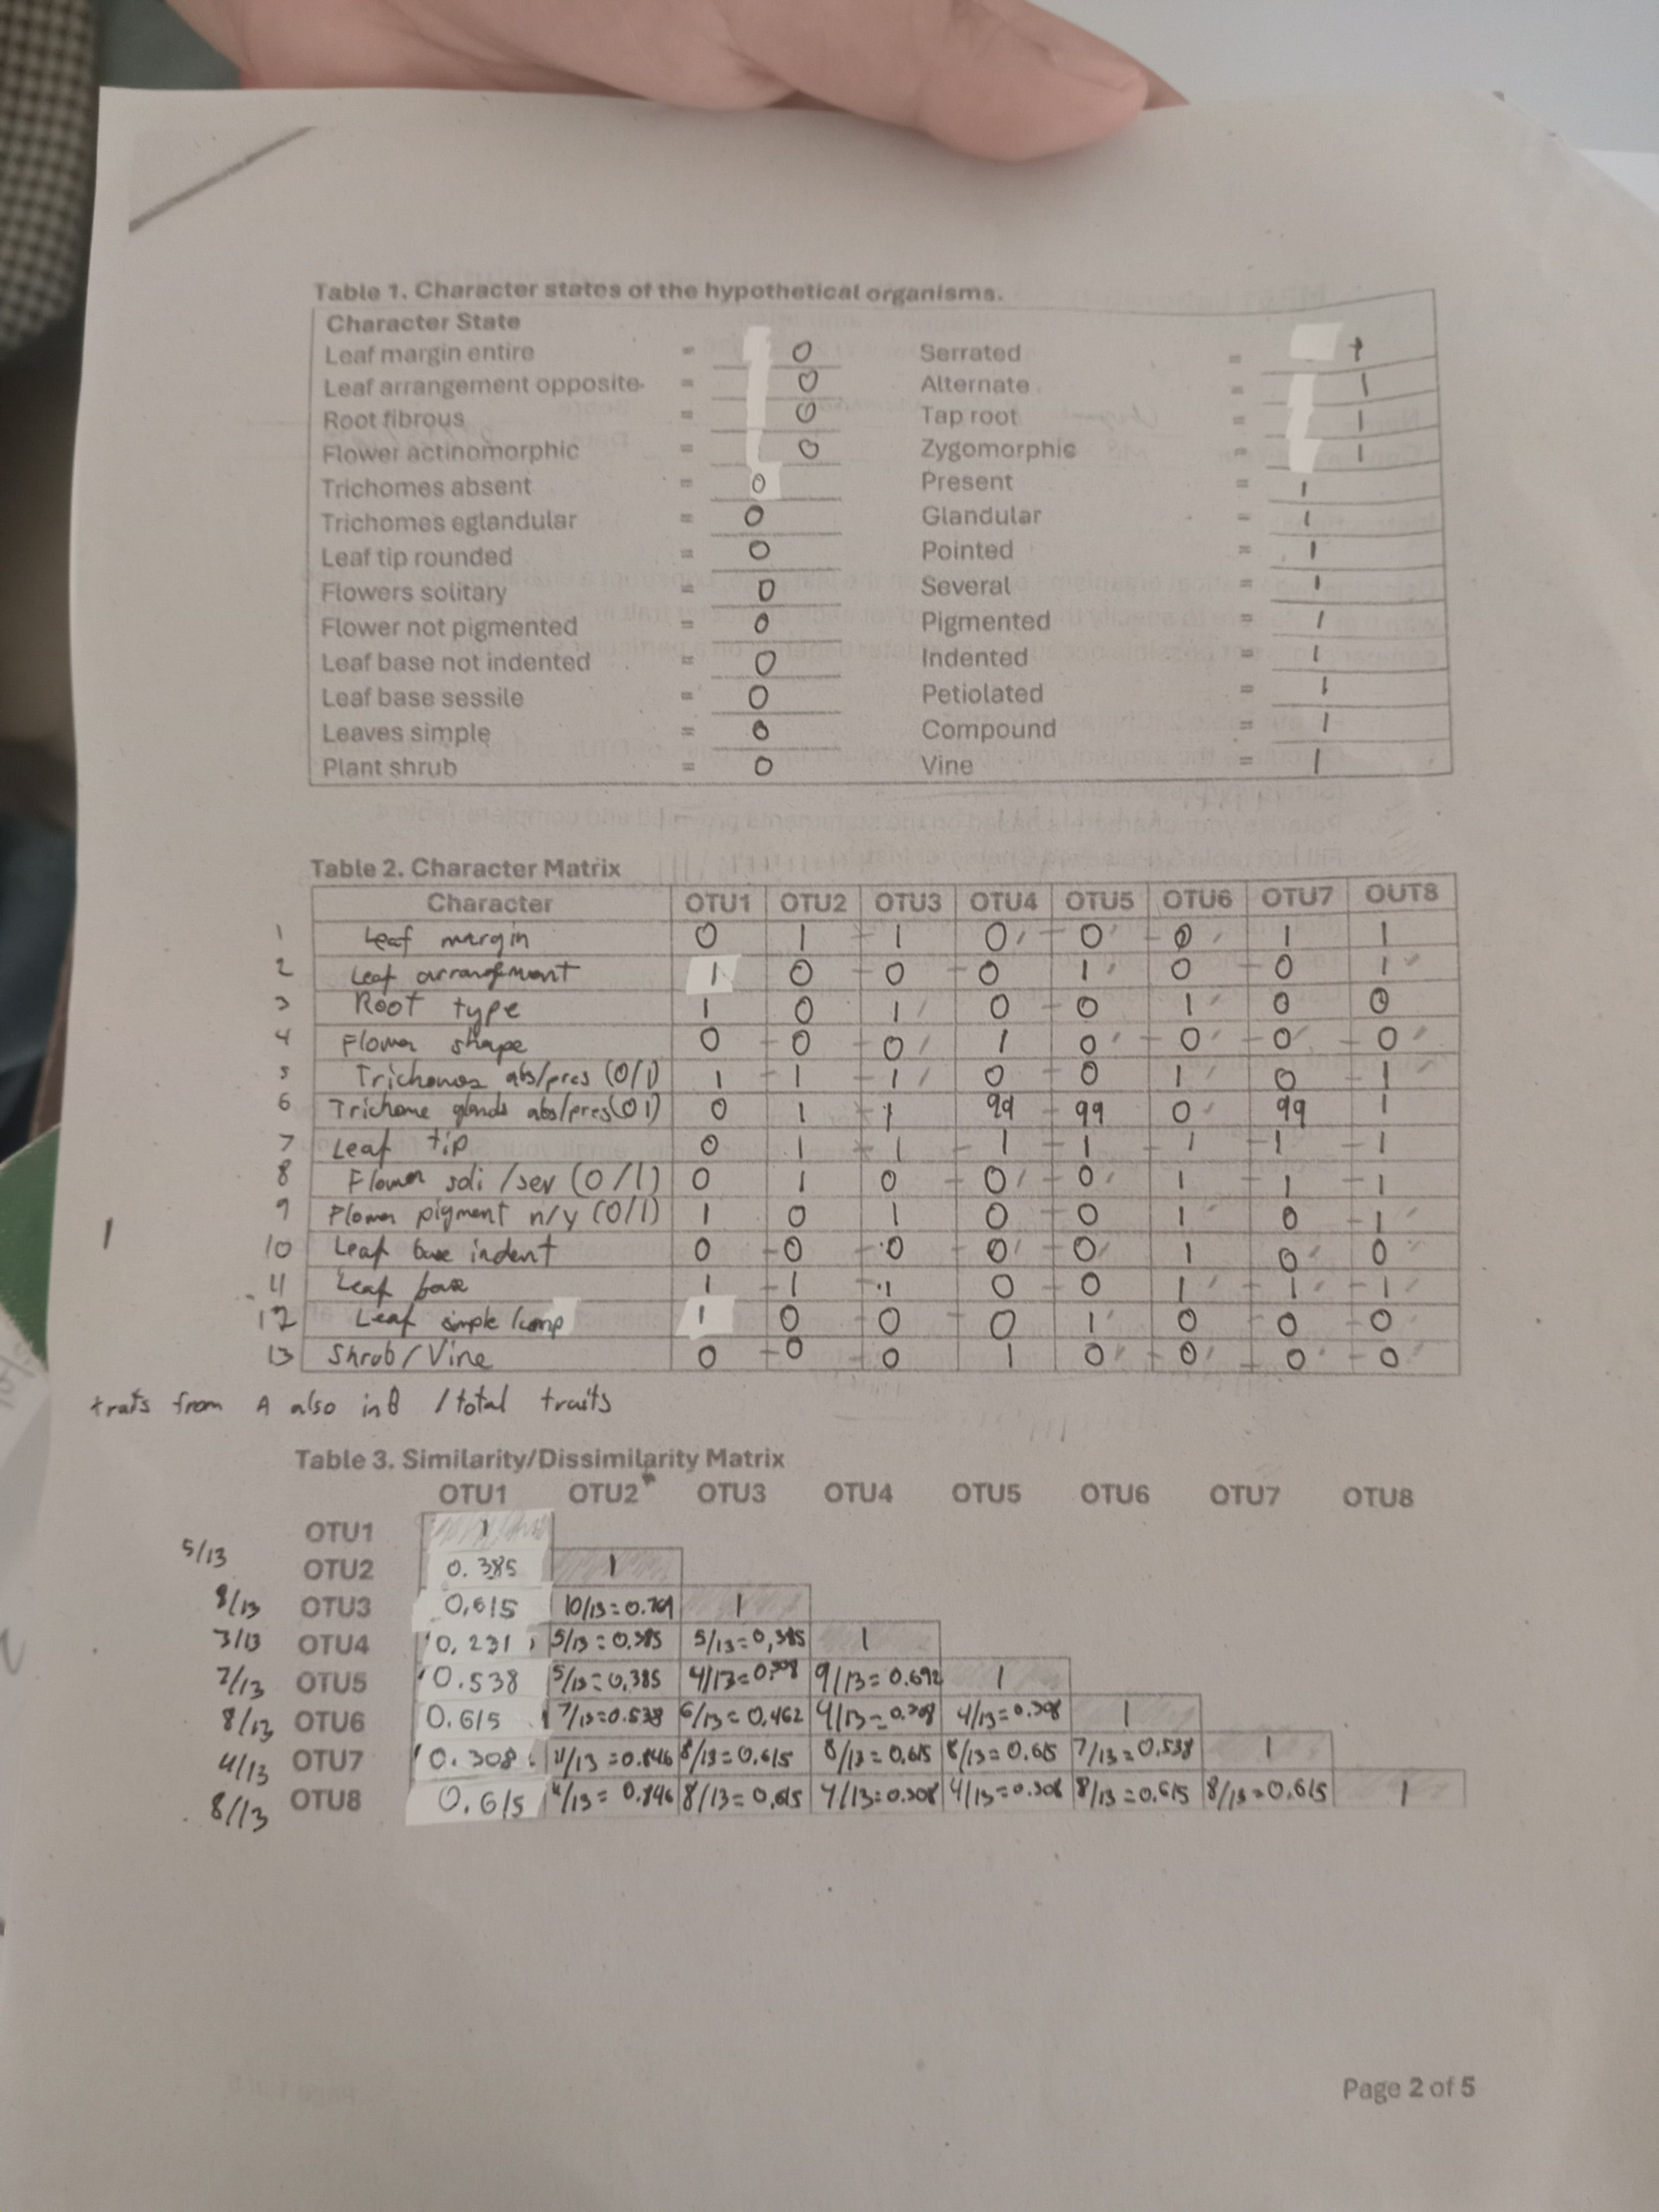 Table 1. Character states of the hypothetical organisms.
Character State
Leaf margin entire = 0 Serrated = 1
Leaf arrangement opposite = 0 Alternate = 1
Root fibrous = 0 Tap root = 1
Flower actinomorphic = 0 Zygomorphic = 1
Trichomes absent = 0 Present = 1
Trichomes eglandular = 0 Glandular = 1
Leaf tip rounded = 0 Pointed = 1
Flowers solitary = 0 Several = 1
Flower not pigmented = 0 Pigmented = 1
Leaf base not indented = 0 Indented = 1
Leaf base sessile = 0 Petiolated = 1
Leaves simple = 0 Compound = 1
Plant shrub = 0 Vine = 1
Table 2. Character Matrix
Character OTU1 OTU2 OTU3 OTU4 OTU5 OTU6 OTU7 OUT8
1 Leaf margin 0 1 1 0 0 0 1 1
2 Leaf arrangement 1 0 0 0 1 0 0 1
3 Root type 1 0 1 0 0 1 0 0
4 Flower shape 0 0 0 1 0 0 0 0
5 Trichomes abs/pres (0/1) 1 1 1 0 0 1 0 1
6 Trichome glands abs/pres (0 1) 0 1 1 99 99 0 99 1
7 Leaf tip 0 1 1 1 1 1 1 1
8 Flower soli/sev (0/1) 0 1 0 0 0 1 1 1
9 Flower pigment n/y (0/1) 1 0 1 0 0 1 0 1
10 Leaf base indent 0 0 0 0 0 1 0 0
11 Leaf base 1 1 1 0 0 1 1 1
12 Leaf simple/comp 1 0 0 0 1 0 0 0
13 Shrub/Vine 0 0 0 1 0 0 0 0
traits from A also in B / total traits
Table 3. Similarity/Dissimilarity Matrix
OTU1 OTU2 OTU3 OTU4 OTU5 OTU6 OTU7 OTU8
OTU1 1
5/13 OTU2 0.385 1
8/13 OTU3 0,615 10/13=0.769 1
3/13 OTU4 0,231 5/13=0.385 5/13=0,385 1
7/13 OTU5 0.538 5/13=0,385 4/13=0.308 9/13=0.692 1
8/13 OTU6 0.615 7/13=0.538 6/13=0.462 4/13=0.308 4/13=0.308 1
4/13 OTU7 0.308 11/13=0.846 8/13=0,615 8/13=0,615 8/13=0.615 7/13=0,538 1
8/13 OTU8 0.615 11/13=0.846 8/13=0,615 4/13=0.308 4/13=0.308 8/13=0.615 8/13=0,615 1
Page 2 of 5